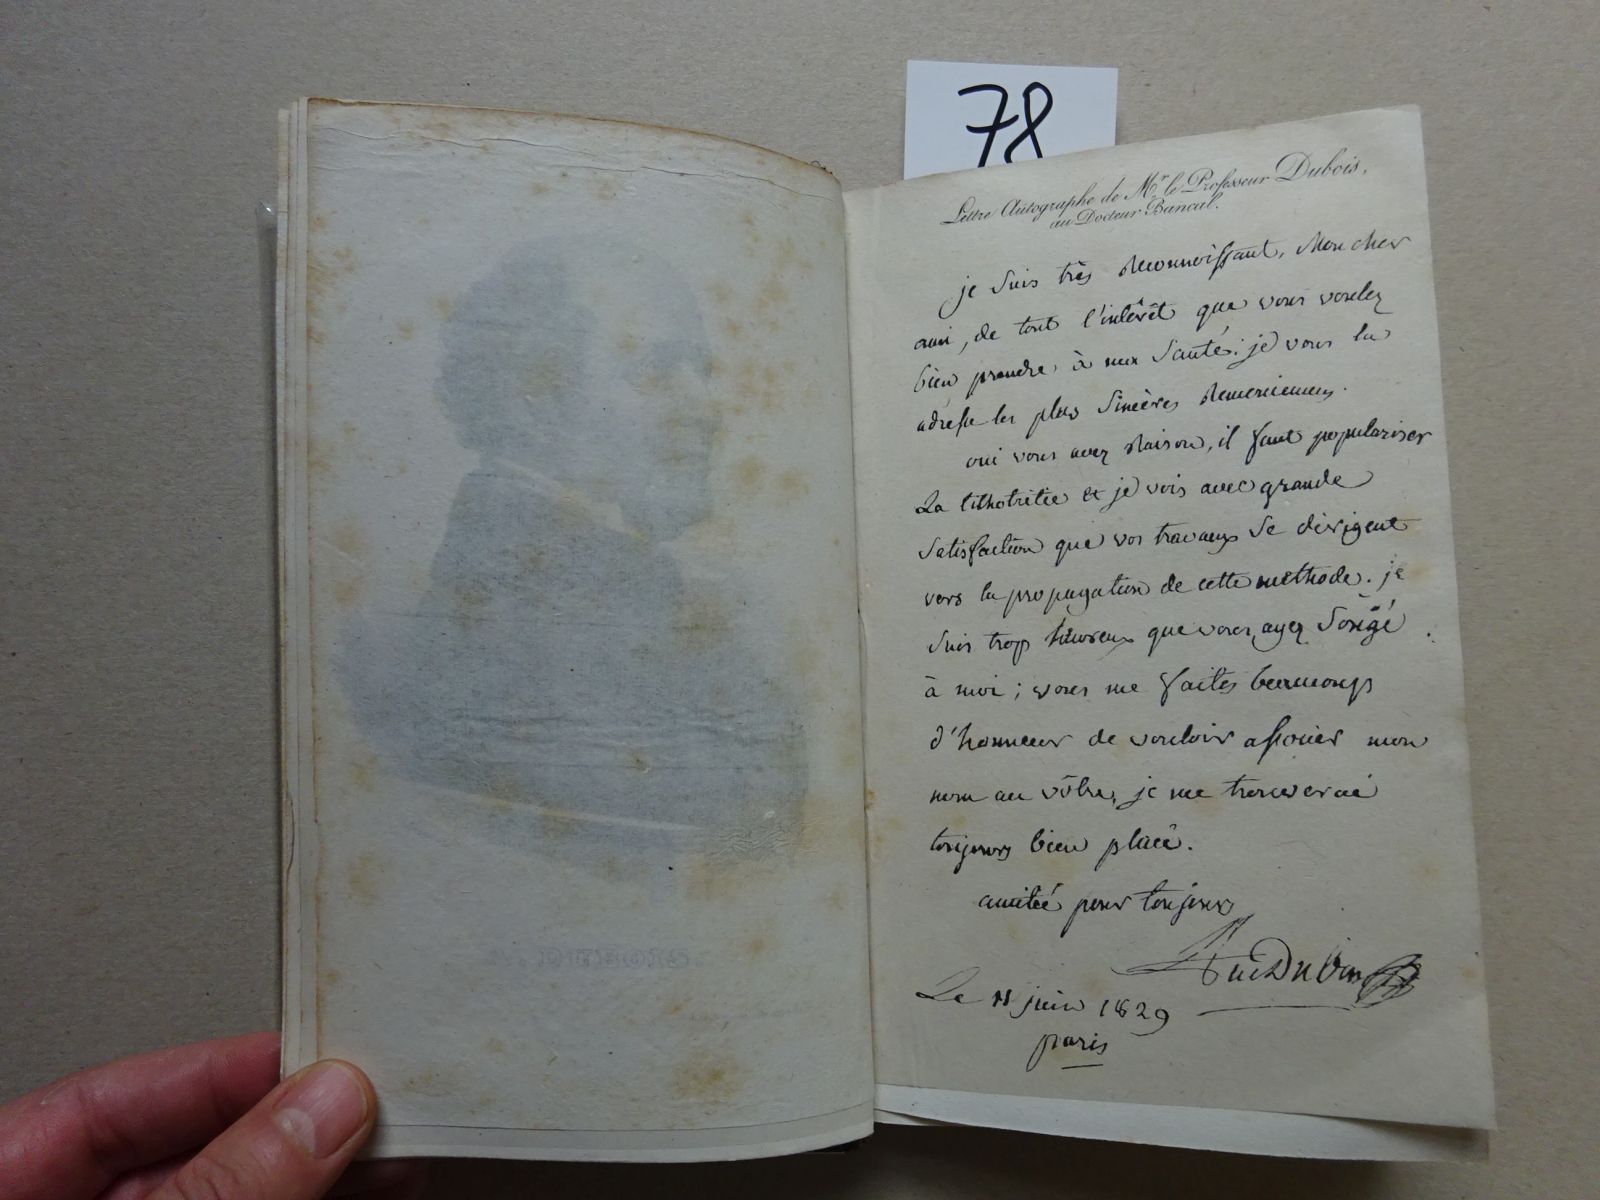 78
Lettre Autographe de Mr. le Professeur Dubois,
au Docteur Bancal.
je suis très reconnoissant, Mon cher
ami, de tout l'intérêt que vous voulez
bien prendre à ma santé. je vous en
adresse les plus sincères remerciemens.
oui vous avez raison, il faut populariser
La lithotritie et je vois avec grande
satisfaction que vos travaux se dirigent
vers la propagation de cette méthode. je
suis trop heureux que vous ayez songé
à moi ; vous me faites beaucoup
d'honneur de vouloir associer mon
nom au vôtre, je me trouverai
toujours bien placé.
amitié pour toujours
Dubois
Le 11 juin 1829
paris
DUBOIS.